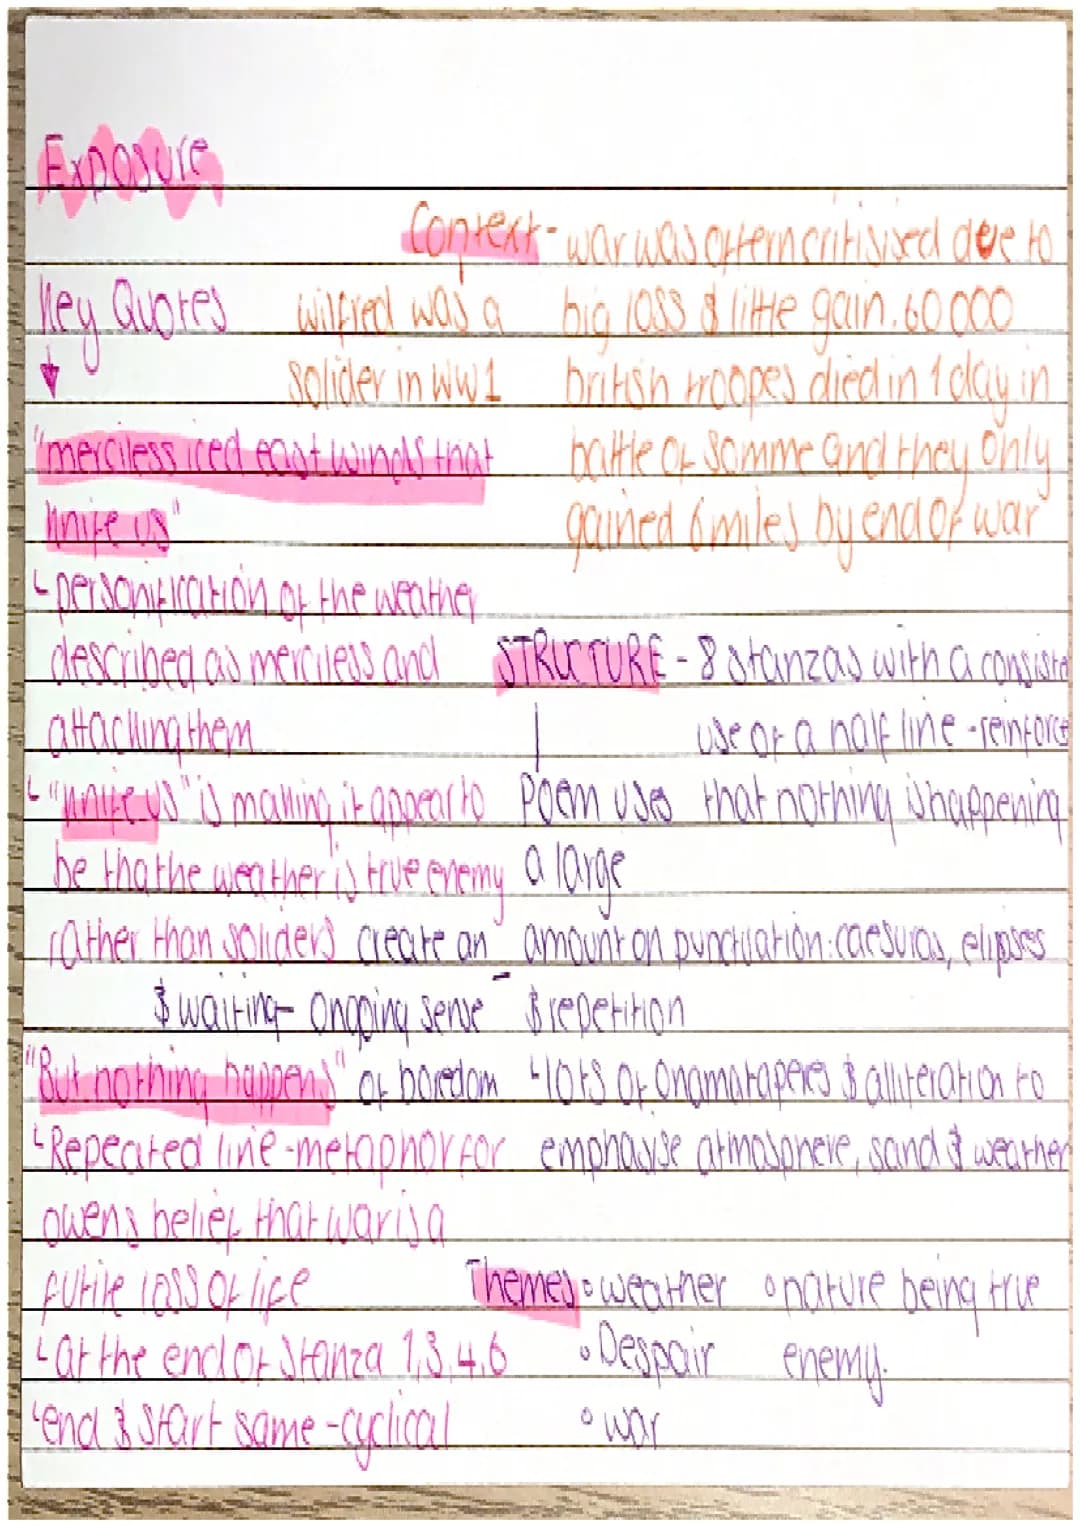 Exposure
Context - war was oftern critisised due to
Key Quotes
wilfred was a
big loss & little gain. 60 000
solider in WW1
british troopes died in 1 day in
battle of Somme and they only
gained 6 miles by end of war
"merciless iced east winds that
knife us"
↳ personification of the weather
described as merciless and
attacking them
↳ "knife us" is making it appear to
be tha the weather is true enemy
rather than soliders
STRUCTURE - 8 stanzas with a consiste
use of a half line - reinforce
that nothing is happening
Poem uses
a large
amount on punctuation: caesuras, elipses
& repetition
create an
& waiting - ongoing sense
of boredom
↳ lots of onamataperes & alliteration to
emphasise atmosphere, sand & weather
"But nothing happens"
↳ Repeated line - metaphor for
owens belief that war is a
futile loss of life
↳ at the end of stanza 1,3,4,6
↳ end & start same - cyclical
Themes ◦ weather
◦ Despair
◦ war
◦ nature being true
enemy.